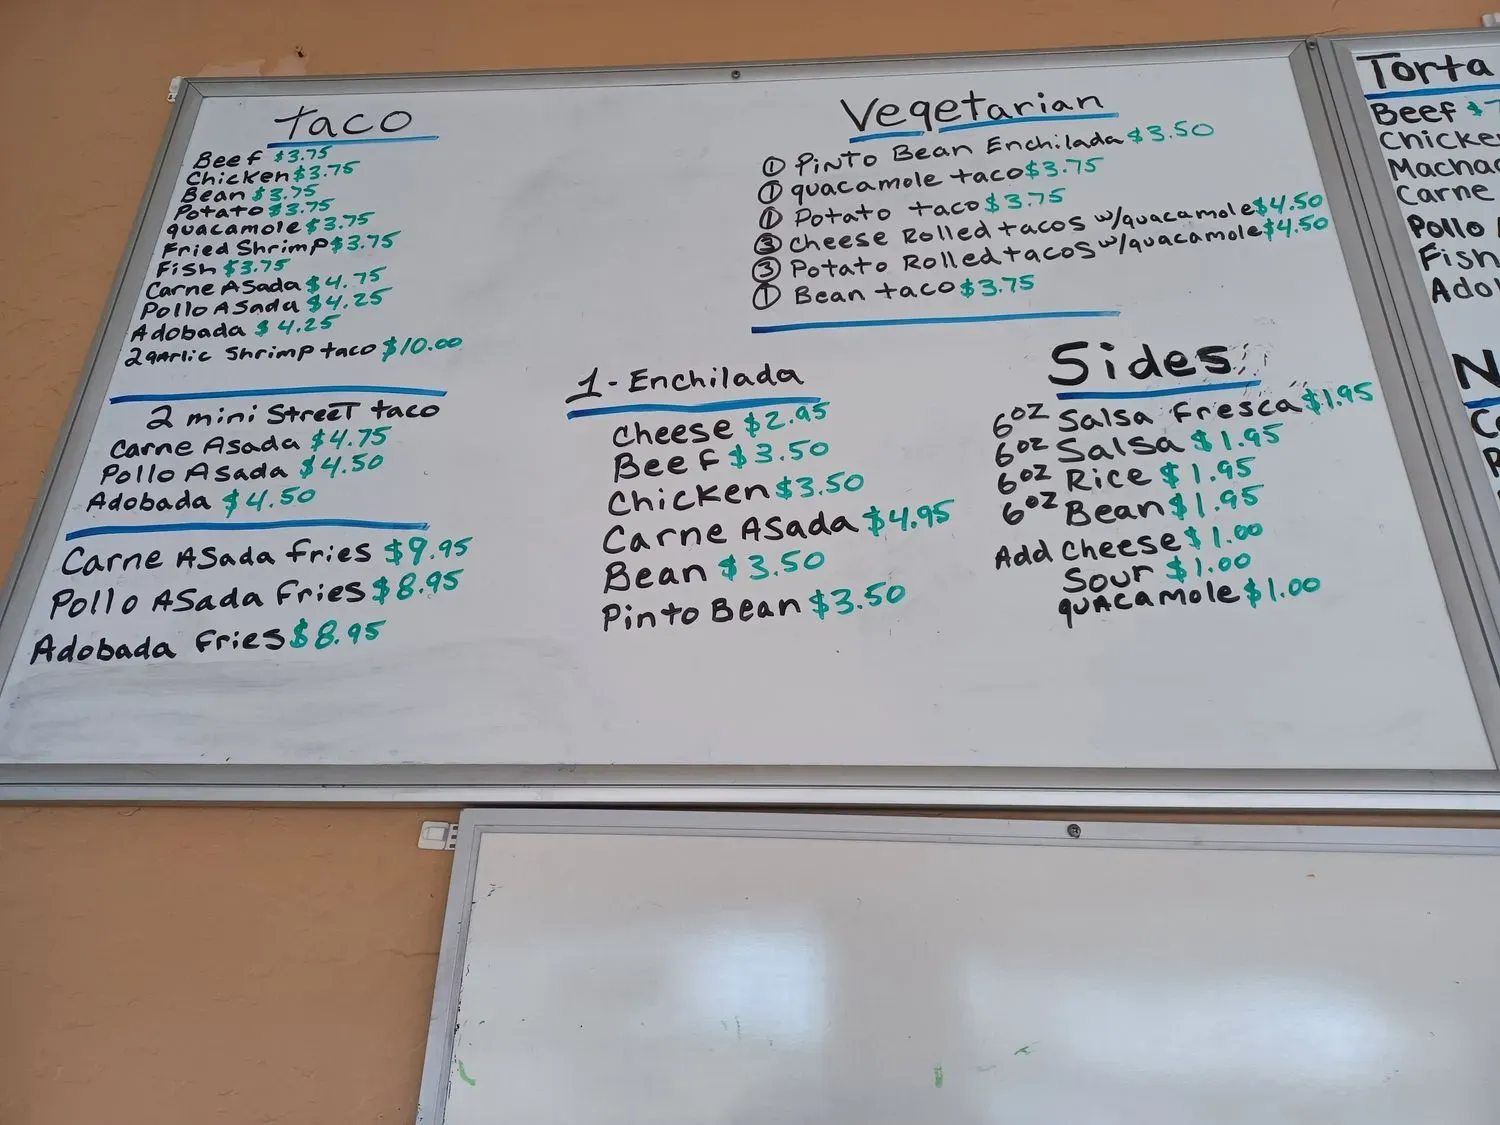 Taco
Beef $3.75
Chicken $3.75
Bean $3.75
Potato $3.75
guacamole $3.75
Fried Shrimp $3.75
Fish $3.75
Carne Asada $4.75
Pollo Asada $4.25
Adobada $4.25
2 garlic Shrimp taco $10.00
2 mini Street taco
Carne Asada $4.75
Pollo Asada $4.50
Adobada $4.50
Carne Asada fries $9.95
Pollo Asada Fries $8.95
Adobada Fries $8.95
Vegetarian
① Pinto Bean Enchilada $3.50
① guacamole taco $3.75
① Potato taco $3.75
③ cheese Rolled tacos w/guacamole $4.50
③ Potato Rolled tacos w/guacamole $4.50
① Bean taco $3.75
1 - Enchilada
cheese $2.95
Beef $3.50
Chicken $3.50
Carne Asada $4.95
Bean $3.50
Pinto Bean $3.50
Sides
6oz Salsa Fresca $1.95
6oz Salsa $1.95
6oz Rice $1.95
6oz Bean $1.95
Add cheese $1.00
Sour $1.00
guacamole $1.00
Torta
Beef $
Carne
Pollo
Fish